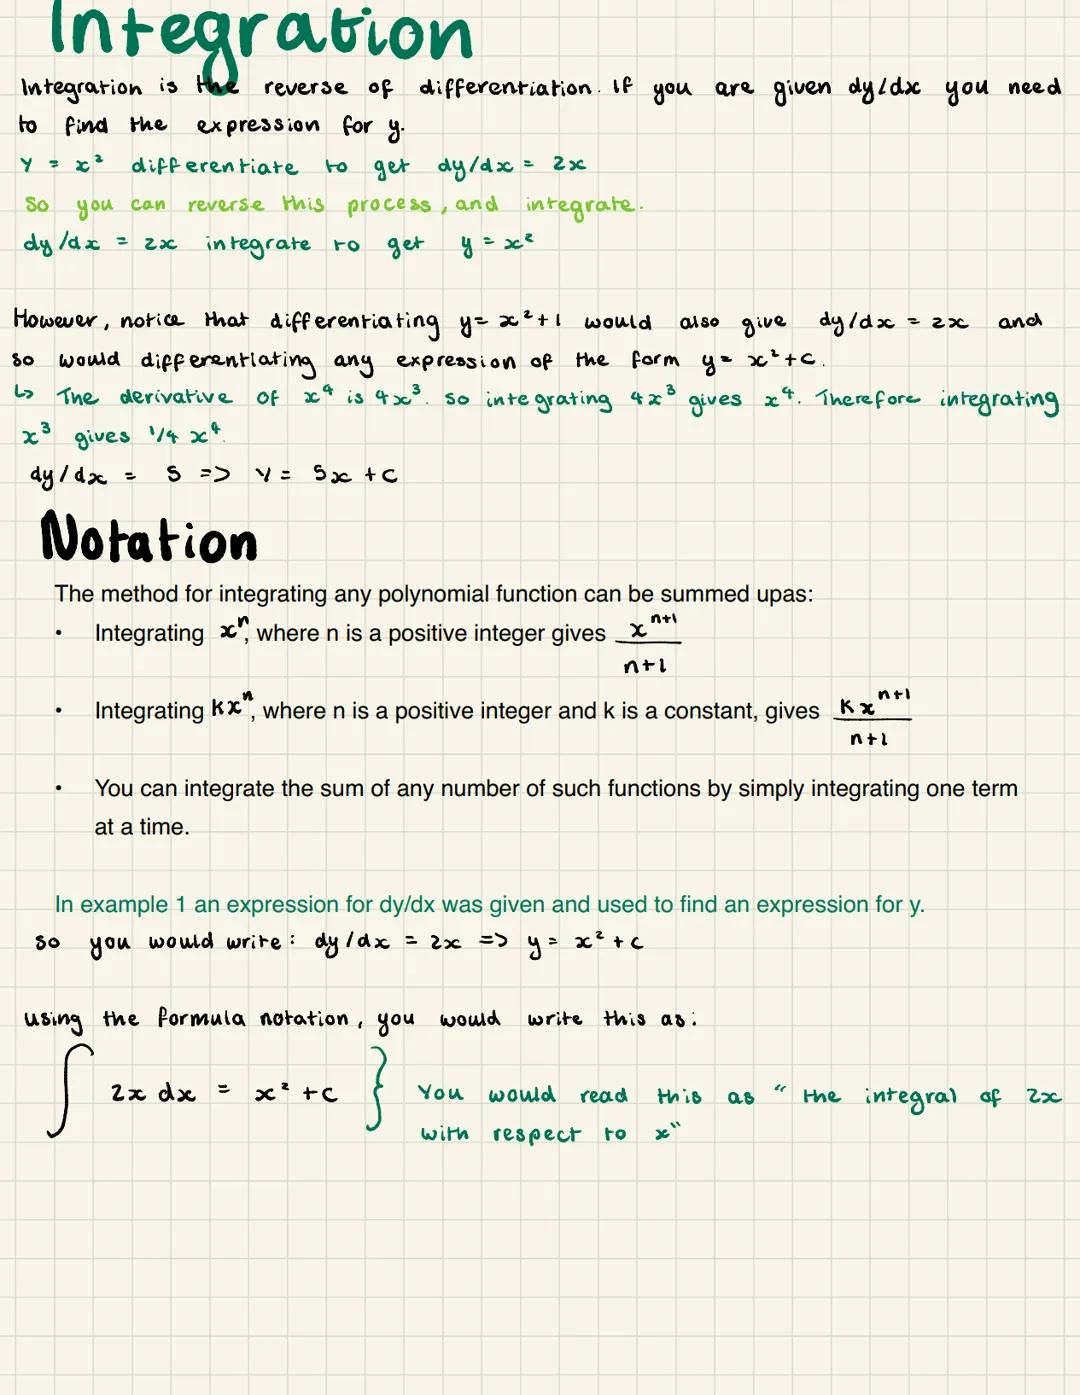 Integration
Integration is the reverse of differentiation. If you are given dy/dx you need
to find the expression for y.
y = x² differentiate to get dy/dx = 2x
So you can reverse this process, and integrate.
dy/dx = 2x integrate to get y = x²
However, notice that differentiating y= x²+1 would also give dy/dx = 2x and
so would differentiating any expression of the form y= x²+c.
↳ The derivative of x⁴ is 4x³. So integrating 4x³ gives x⁴. Therefore integrating
x³ gives 1/4 x⁴.
dy/dx = 5 => y = 5x +c
Notation
The method for integrating any polynomial function can be summed upas:
• Integrating xⁿ, where n is a positive integer gives xⁿ⁺¹/n+1
• Integrating kxⁿ, where n is a positive integer and k is a constant, gives kxⁿ⁺¹/n+1
• You can integrate the sum of any number of such functions by simply integrating one term
at a time.
In example 1 an expression for dy/dx was given and used to find an expression for y.
so you would write: dy/dx = 2x => y = x² + c
using the formula notation, you would write this as:
∫ 2x dx = x² +c } You would read this as "the integral of 2x
with respect to x"